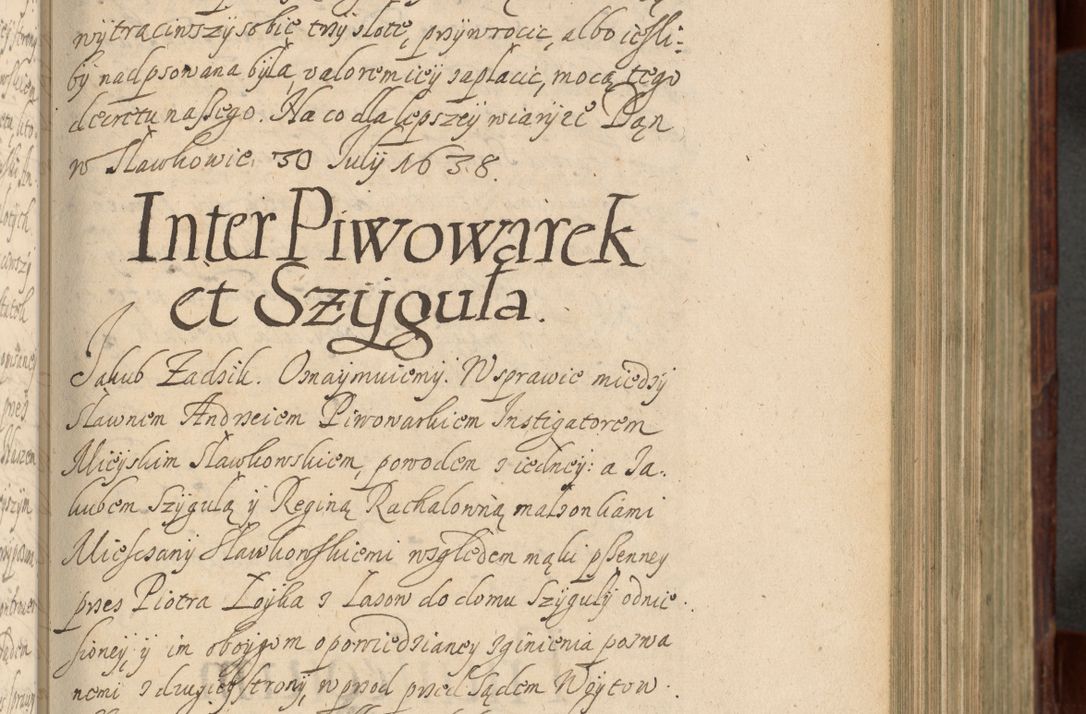 wytraciwszy sobie trzy złote, przywrocic, albo iessli-
by nadpsowana była, valorem iey zapłacic, mocą tego
decretu naszego. Na co dla lepszey wiary ec Dąn
w Sławkowie, 30 July 1638.
Inter Piwowarek
et Szÿguła.
Jakub Zadzik. Oznaymuiemy. W sprawie miedzy
Sławnem Andrzeiem Piwowarkiem Instigatorem
Mieyskim Sławkowskiem, powodem z iedney: a Ja-
kubem Szygułą y Reginą Rachalowną małzonkami
Miesczany Sławkowskiemi względem mąki pszenney
przez Piotra Łoyka z Lasow do domu Szyguły odnie-
sioney, y im oboygom opowiedzianey zginienia pozwa-
nemi z drugiey strony, wprzod przed Sądem Woytow-